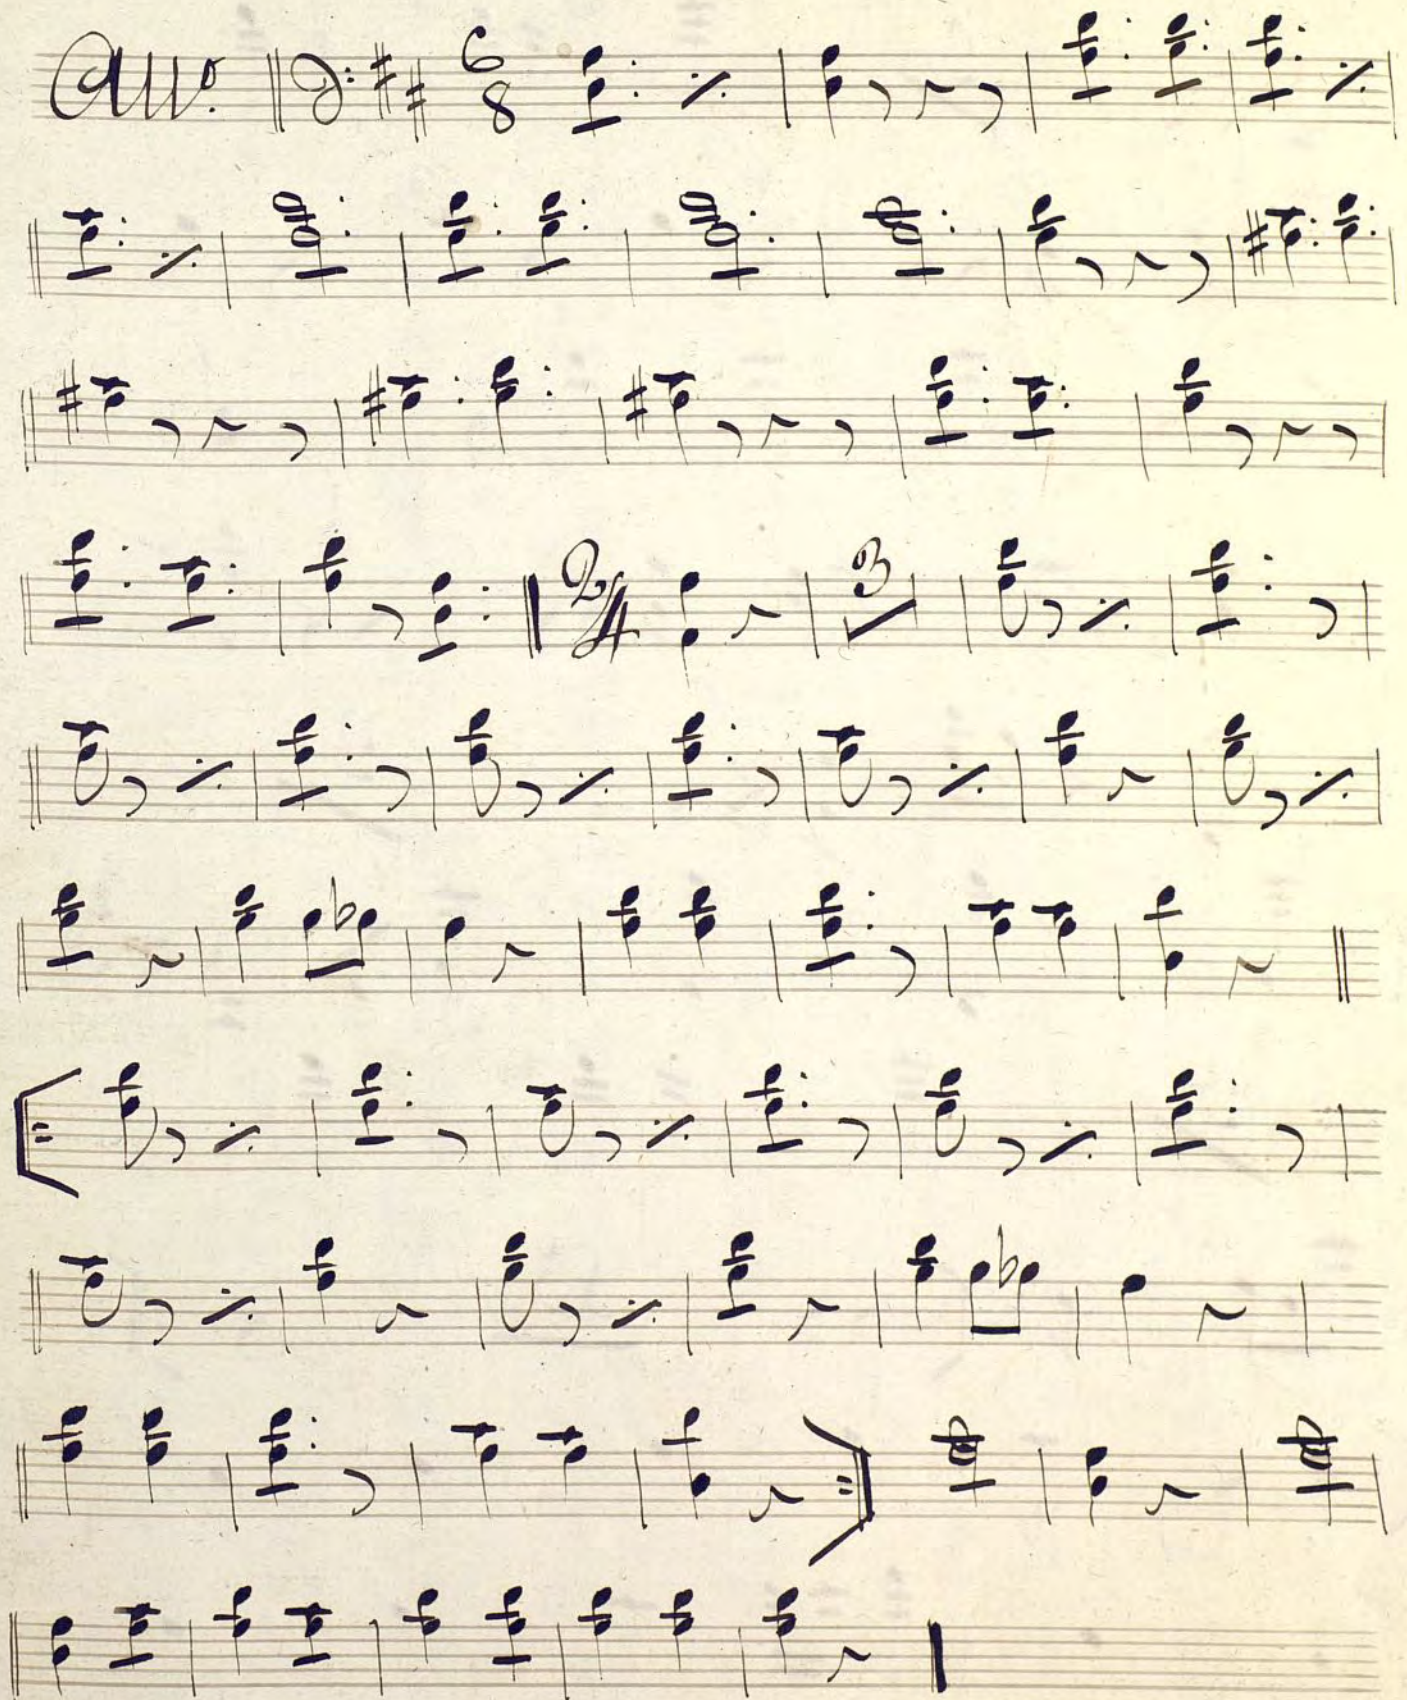 All.º 6/8
2/4 3